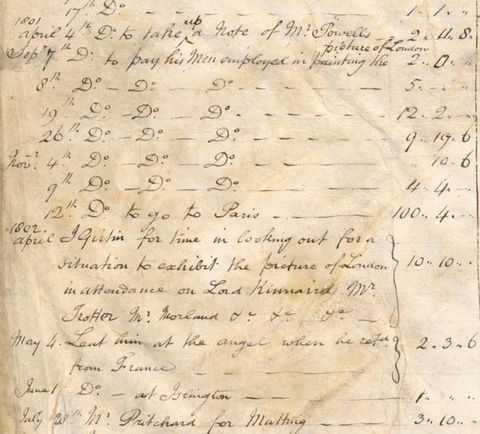 17th Do — — — 1 " 1 "
1801
April 4th Do to take up a Note of Mr Powells 2 " 11 " 8
picture of London
Sep 7th Do to pay his Men employed in painting the 2 " 0 "
8th Do — Do — Do — 5 " —
19th Do — Do — Do — 12 " 2 " —
26th Do — Do — Do — 9 " 19 " 6
Novr 4th Do — Do — Do — " 10 " 6
9th Do — Do — Do — 4 " 4 " —
12th Do to go to Paris — 100 " 4 " —
1802
April J Girtin for time in looking out for a
situation to exhibit the picture of London 10 " 10 "
in attendance on Lord Kinnaird Mr
Trotter Mr Morland &c &c &c
May 4 Leat him at the angel when he retd 2 " 3 " 6
from France
June 1 Do — at Islington — 1 "
July Mr Pritchard for Matting — 3 " 10 "